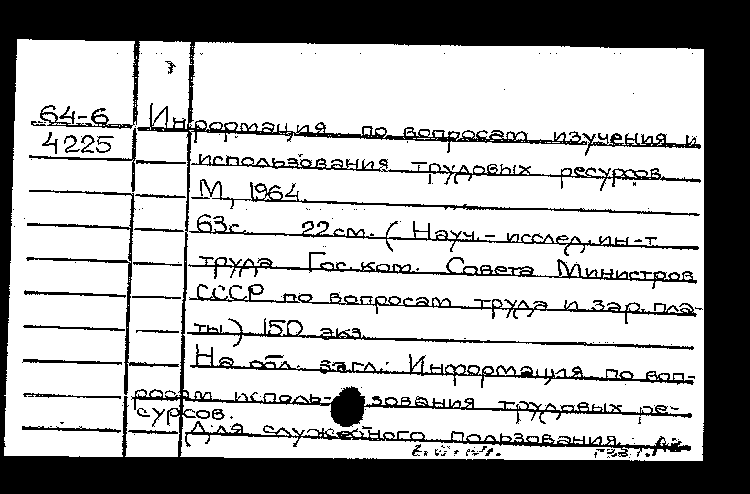 64-6 Информация по вопросам изучения и
4225 использования трудовых ресурсов.
М., 1964.
63с. 22см. (Науч.-исслед. ин-т
труда Гос. ком. Совета Министров
СССР по вопросам труда и зар. пла-
ты) 150 экз.
На обл. загл.: Информация по воп-
росам исполь-зования трудовых ре-
сурсов.
Для служебного пользования.